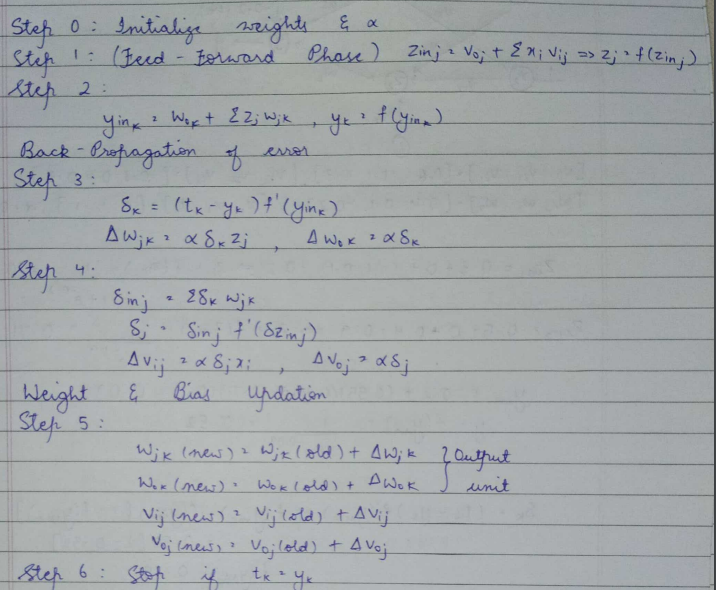 Step 0 : Initialize weights & α
Step 1 : (Feed - Forward Phase) Zinj = Voj + Σxi Vij => Zj = f(Zinj)
Step 2 :
yink = Wok + ΣZj Wjk , yk = f(yink)
Back - Propagation of error
Step 3 :
δk = (tk - yk) f'(yink)
ΔWjk = α δk Zj , ΔWok = α δk
Step 4 :
δinj = Σδk Wjk
δj = δinj f'(δZinj)
ΔVij = α δj xi , ΔVoj = α δj
Weight & Bias Updation
Step 5 :
Wjk (new) = Wjk (old) + ΔWjk } Output
Wok (new) = Wok (old) + ΔWok } unit
Vij (new) = Vij (old) + ΔVij
Voj (new) = Voj (old) + ΔVoj
Step 6 : Stop if tk = yk